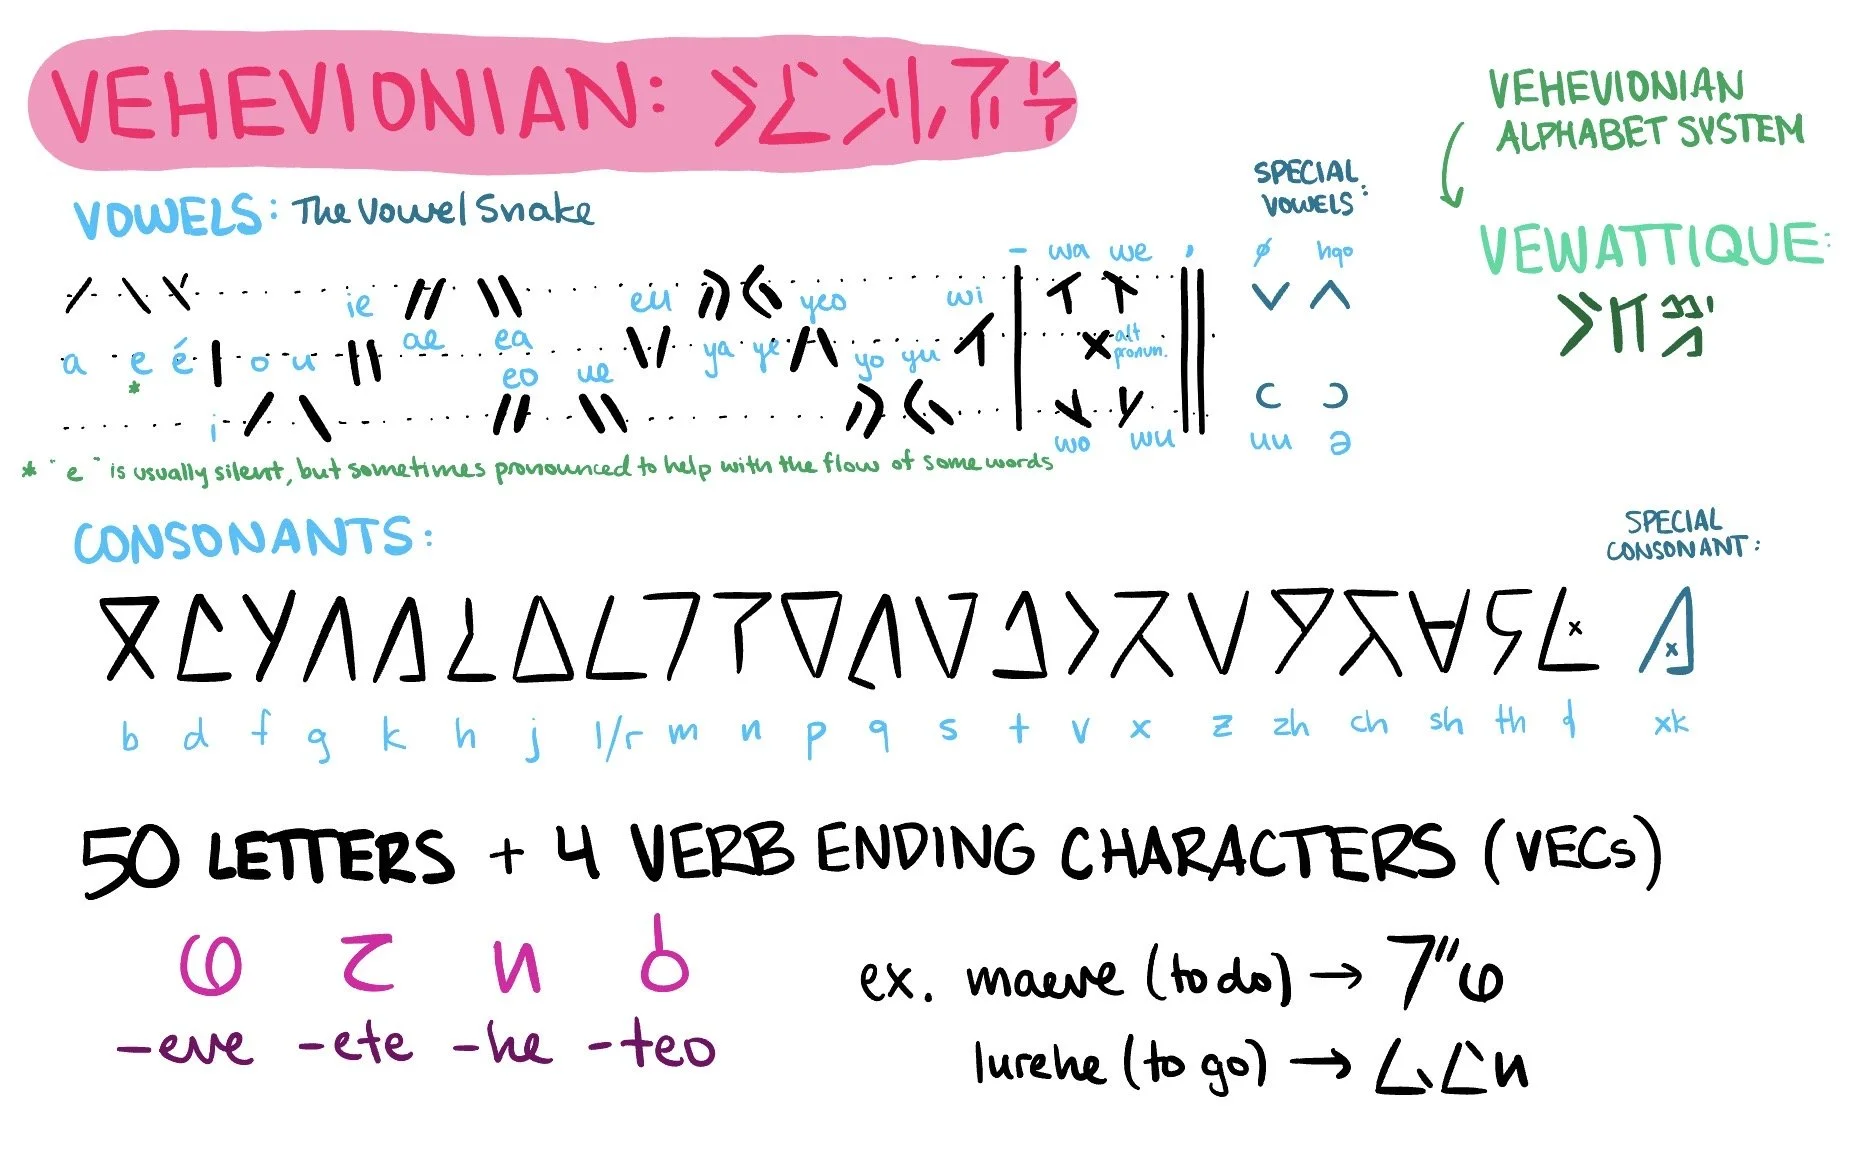 VEHEVIONIAN:
VEHEVIONIAN
ALPHABET SYSTEM
VEWATTIQUE:
VOWELS: The Vowel Snake
SPECIAL
VOWELS:
- wa we ,
ie eu yeo wi
a e é o u ae ea ya ye yo yu alt
pronun.
* eo ue
i wo wu
ø hqo
uu ə
* "e" is usually silent, but sometimes pronounced to help with the flow of some words
CONSONANTS:
SPECIAL
CONSONANT:
b d f g k h j l/r m n p q s t v x z zh ch sh th xk
50 LETTERS + 4 VERB ENDING CHARACTERS (VECs)
-eve -ete -he -teo
ex. maeve (to do) →
lurehe (to go) →